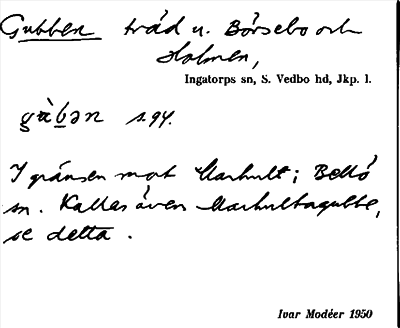 Gubben träd u. Börsebo och
Holmen,
Ingatorps sn, S. Vedbo hd, Jkp. l.
gu̇̀bən s. 94.
I gränsen mot Marhult i Bellö
sn. Kallas även Marhultagubbe,
se detta.
Ivar Modéer 1950